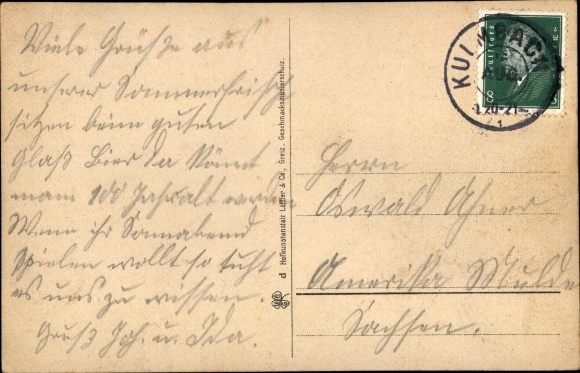 Viele Grüße aus
unserer Sommerfrische
sitzen beim guten
Glaß Bier da könnt
mann 100 Jahr alt werden
Wenn ihr Sonnabend
spielen wollt so tuht
es uns zu wissen.
Gruß Joh. u. Ida.
d Hofkunstanstalt Löffler & Co., Greiz. Geschmacksmusterschutz.
KULMBACH
AUG
20-21
1
8
8
Herrn
Oswald
Amerika Mulde
Sachsen.